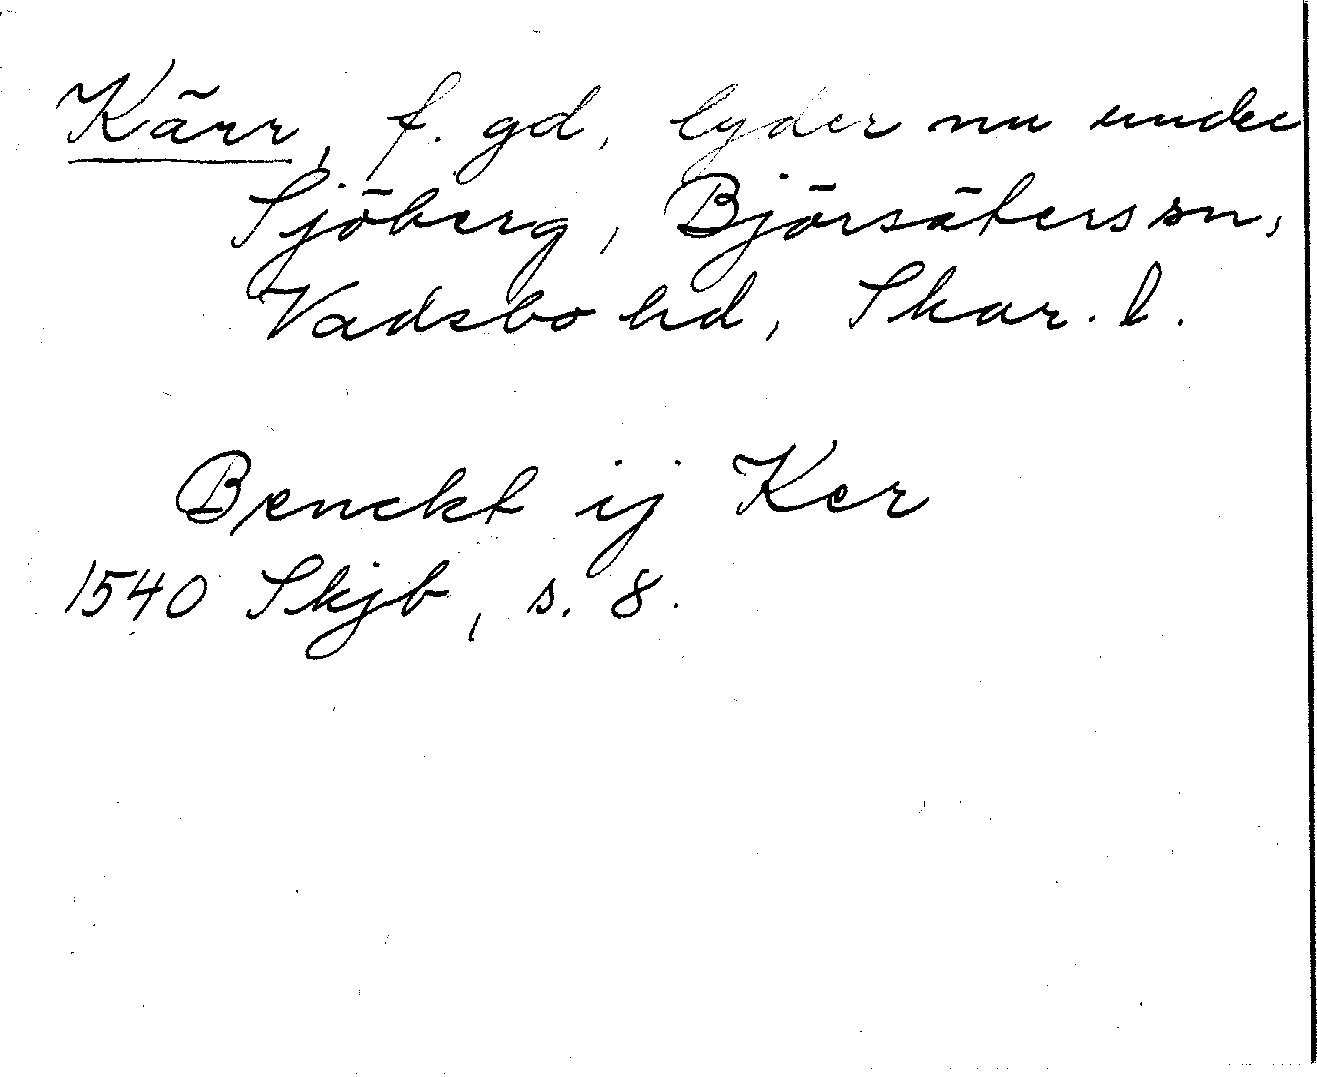 Kärr, f. gd, lyder nu unde
Sjöberg, Björsäters sn,
Vadsbo hd, Skar. l.
Benckt ij Ker
1540 Skjb, s. 8.